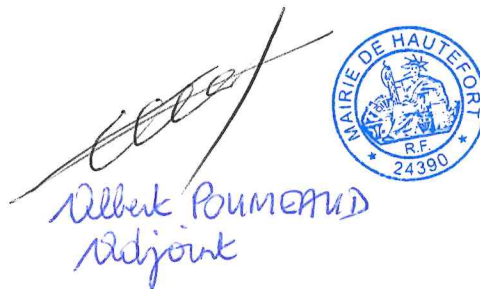 MAIRIE DE HAUTEFORT
R.F.
★ 24390 ★
Albert POUMEAUD
Adjoint